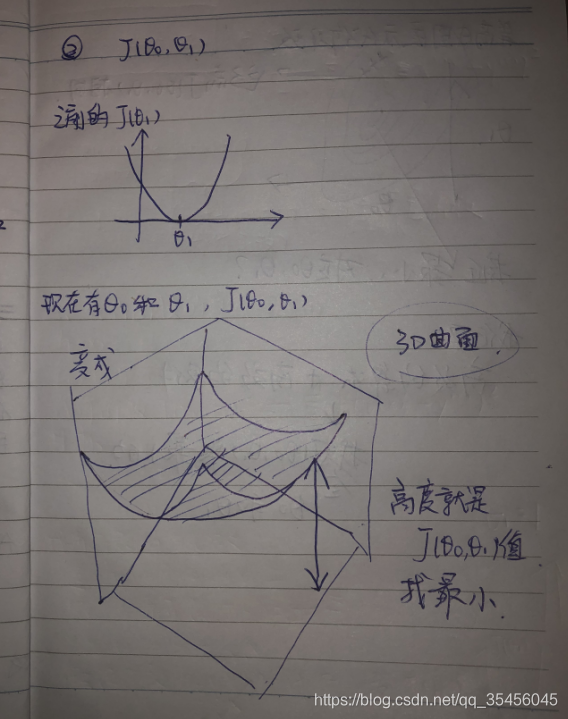 ② J(θ₀,θ₁)
之前的 J(θ₁)
θ₁
现在有θ₀和 θ₁, J(θ₀,θ₁)
变成
3D曲面.
高度就是
J(θ₀,θ₁)值.
找最小.
https://blog.csdn.net/qq_35456045